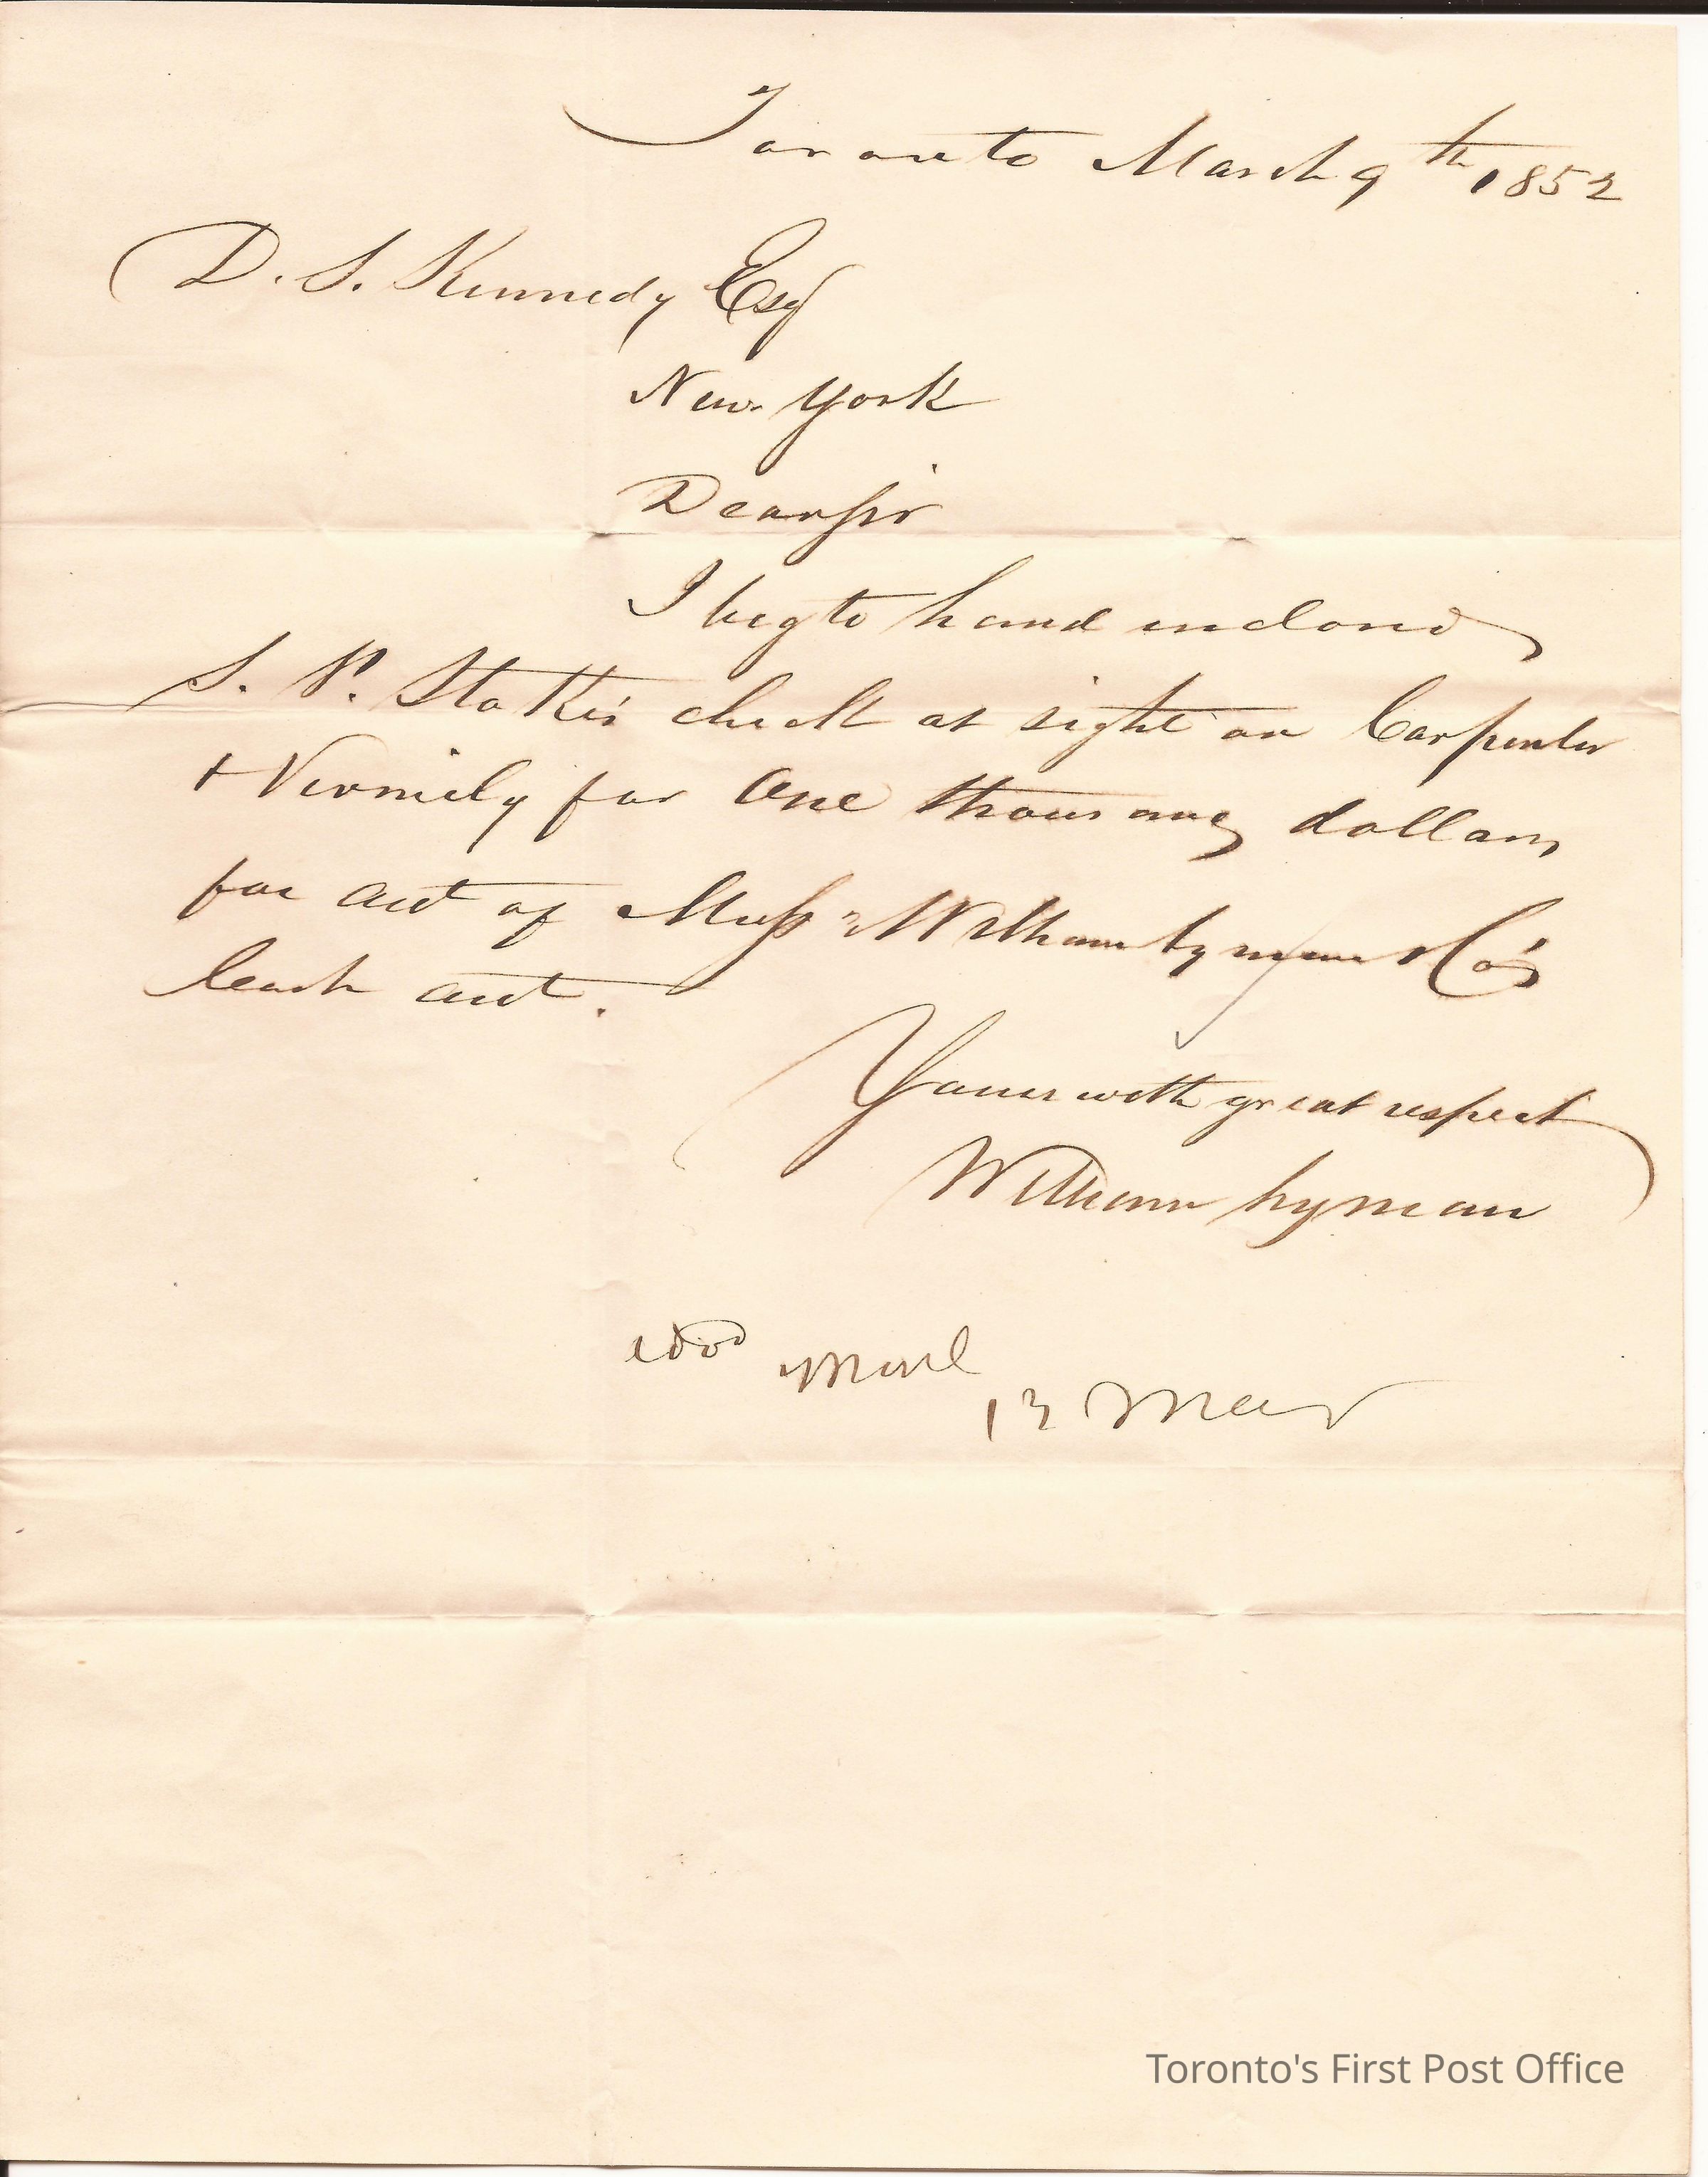 Toronto March 9th 1852
D. S. Kennedy Esq
New York
Dear Sir
I beg to hand inclosed
S. P. Stokes check at sight on Carpenter
+ Vermily for One thousand dollars
for acct of Messrs William Lyman & Co's
Cash acct.
Yours with great respect
William Lyman
13 Mar
Toronto's First Post Office